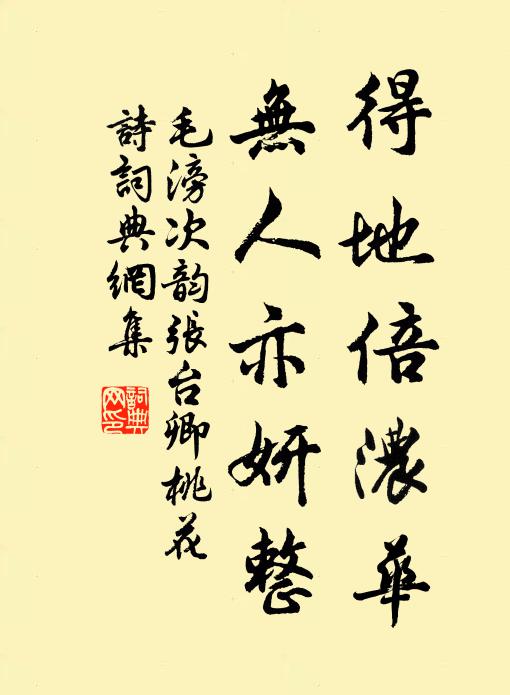 得地倍濃華
無人亦妍整
毛滂次韵張台卿桃花
詩詞典網集
詞典網印